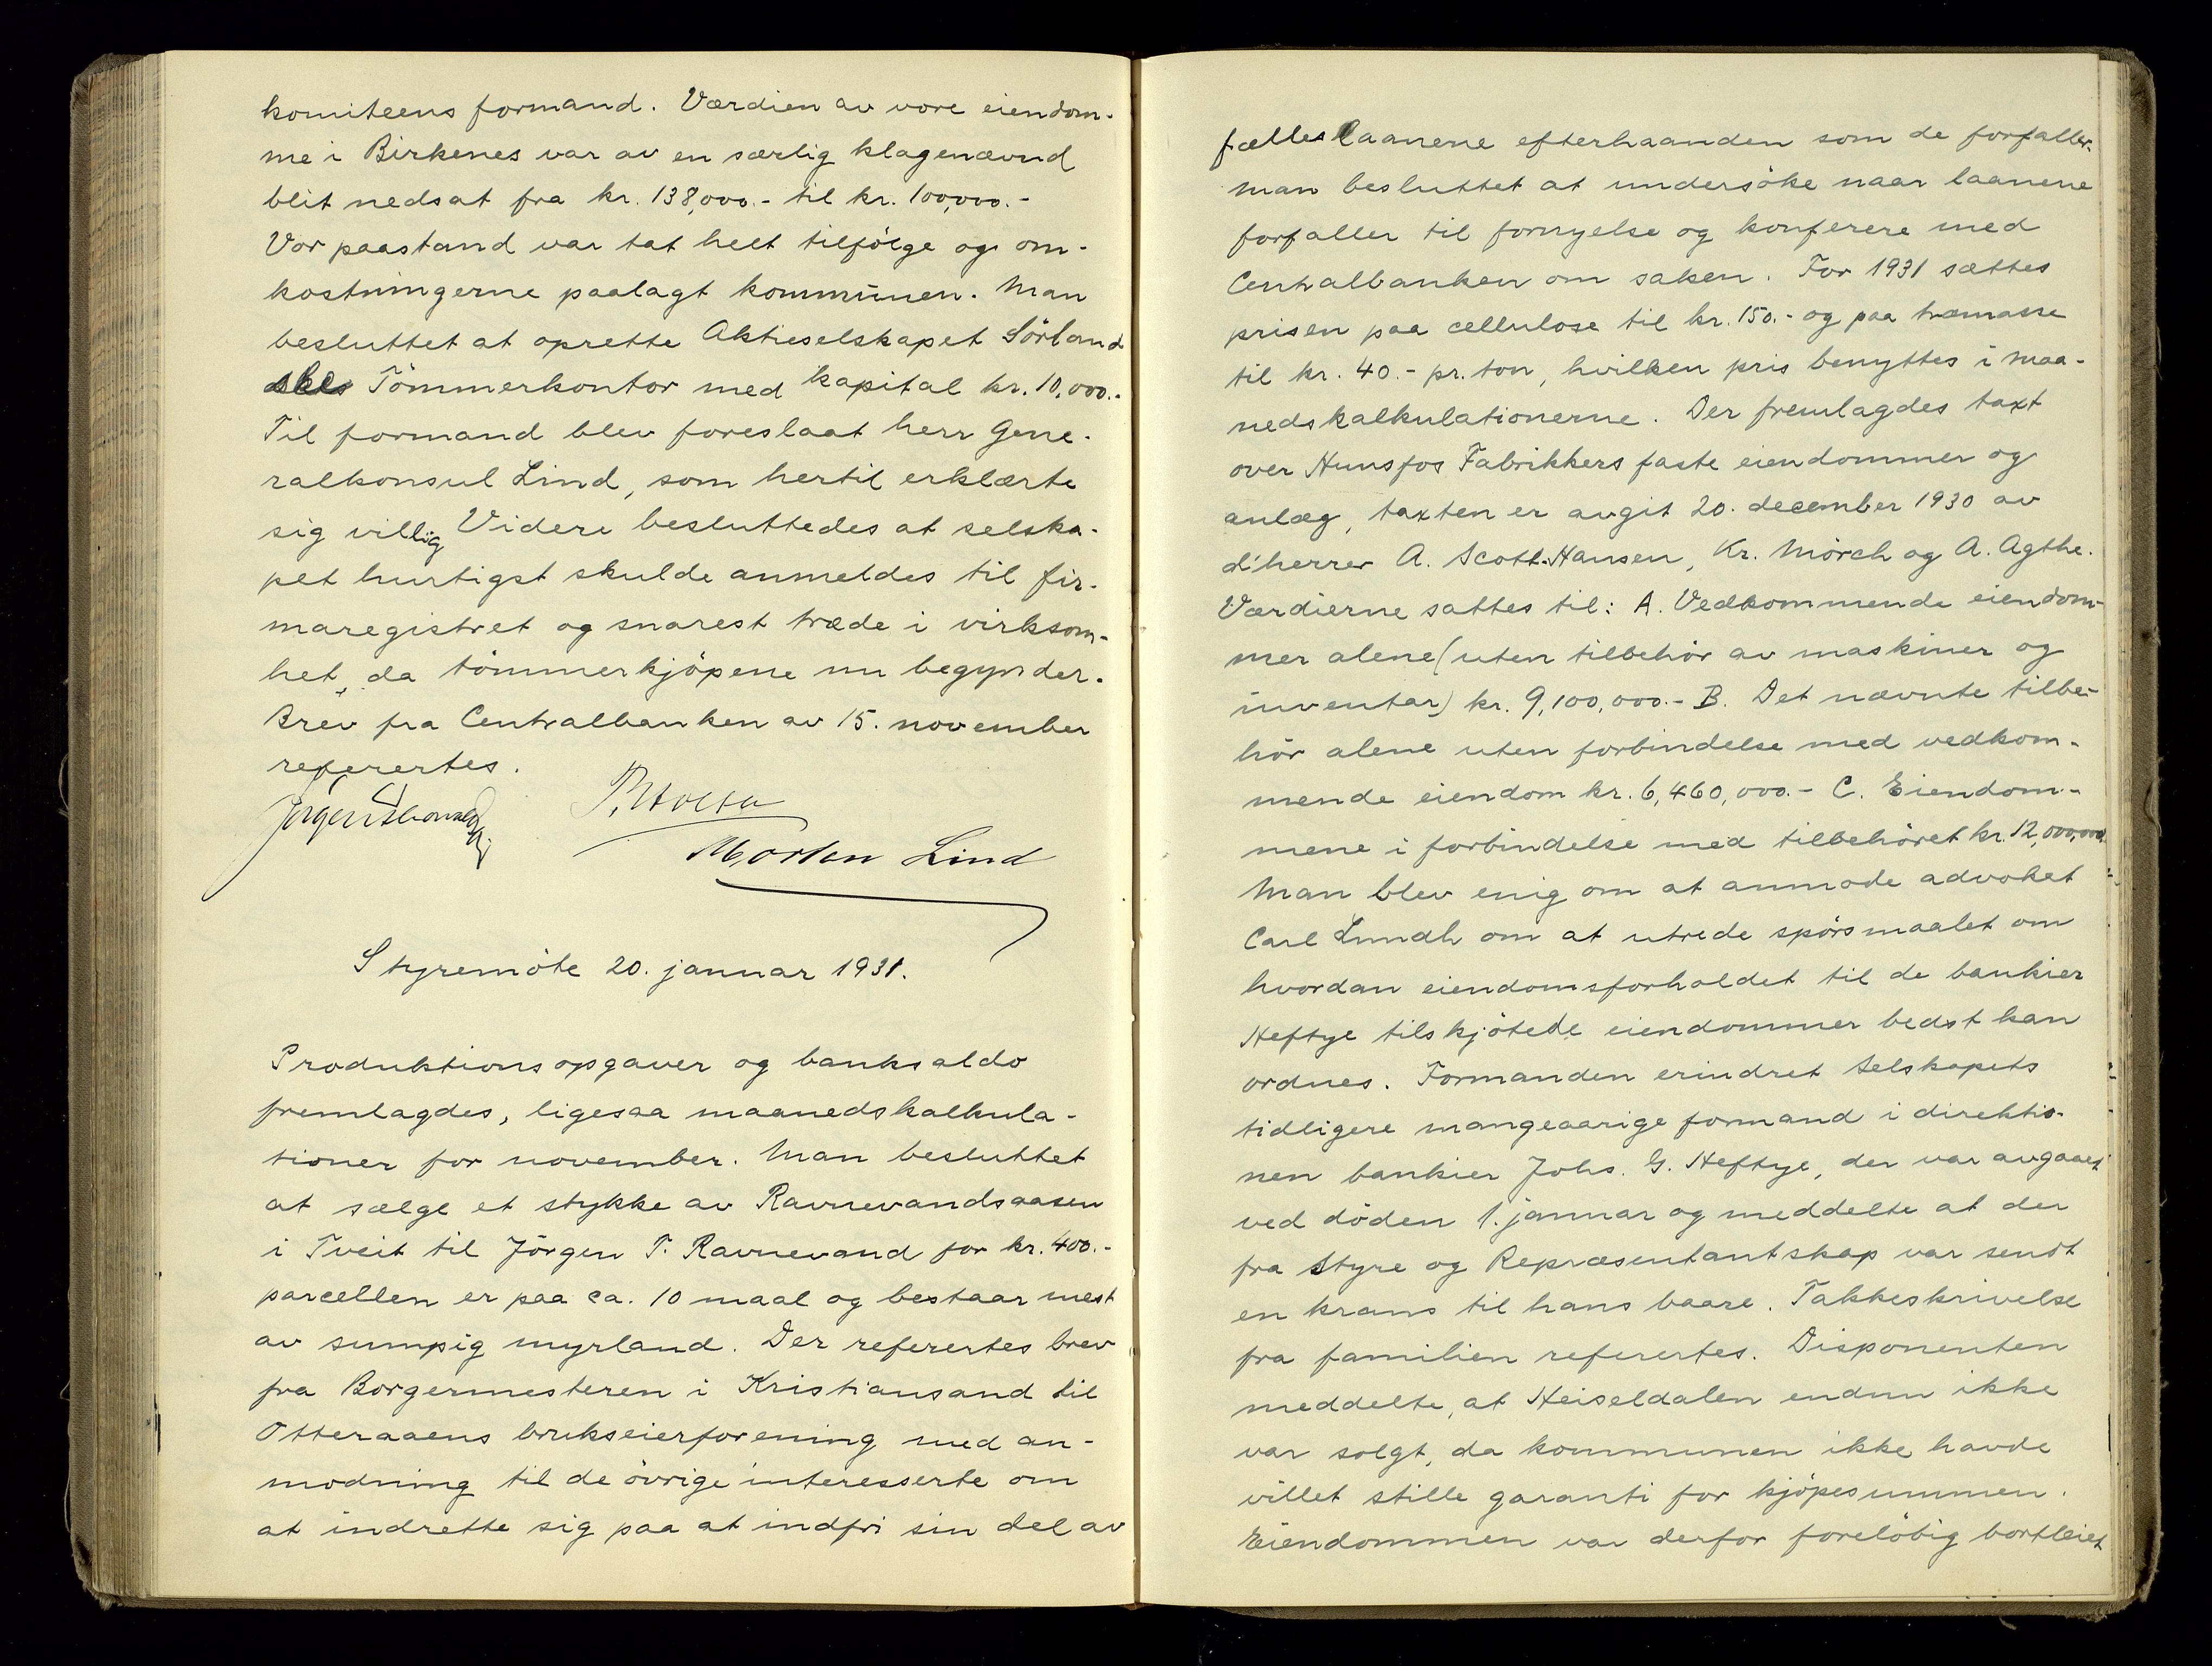 komiteens formand. Værdien av vore eiendom-
me i Birkenes var av en særlig klagenævnd
blit nedsat fra kr. 138,000.- til kr. 100,000.-
Vor paastand var tat helt tilfölge og om-
kostningerne paalagt kommunen. Man
besluttet at oprette Aktieselskapet Sörland
ske Tömmerkontor med kapital kr. 10,000.-
Til formand blev foreslaat herr Gene-
ralkonsul Lind, som hertil erklærte
sig villig Videre besluttedes at selska-
pet hurtigst skulde anmeldes til fir-
maregistret og snarest træde i virksom-
het, da tömmerkjöpene nu begynder.
Brev fra Centralbanken av 15. november
referertes.
Morten Lind
Styremöte 20. januar 1931.
Produktionsopgaver og banksaldo
fremlagdes, ligesaa maanedskalkula-
tioner for november. Man besluttet
at sælge et stykke av Ravnevandsaasen
i Tveit til Jörgen T. Ravnevand for kr. 400.-
parcellen er paa ca. 10 maal og bestaar mest
av sumpig myrland. Der referertes brev
fra Borgermesteren i Kristiansand til
Otteraaens brukseierforening med an-
modning til de övrige interesserte om
at indrette sig paa at indfri sin del av
fælleslaanene efterhaanden som de forfaller.
Man besluttet at undersöke naar laanene
forfaller til fornyelse og konferere med
Centralbanken om saken. For 1931 sættes
prisen paa cellulose til kr. 150.- og paa træmasse
til kr. 40.- pr. ton, hvilken pris benyttes i maa-
nedskalkulationerne. Der fremlagdes taxt
over Hunsfos Fabrikkers faste eiendommer og
anlæg, taxten er avgit 20. december 1930 av
d'herrer A. Scott-Hansen, Kr. Mörch og A. Agthe.
Værdierne sattes til: A. Vedkommende eiendom-
mer alene (uten tilbehör av maskiner og
inventar) kr. 9,100,000.- B. Det nævnte tilbe-
hör alene uten forbindelse med vedkom-
mende eiendom kr. 6,460,000.- C. Eiendom-
mene i forbindelse med tilbehöret kr. 12,000,000.
Man blev enig om at anmode advokat
Carl Lundh om at utrede spörsmaalet om
hvordan eiendomsforholdet til de bankier
Heftye tilskjötede eiendommer bedst kan
ordnes. Formanden erindret Selskapets
tidligere mangeaarige formand i direktio-
nen bankier Johs. G. Heftye, der var avgaaet
ved döden 1. januar og meddelte at der
fra Styre og Repræsentantskap var sendt
en krans til hans baare. Takkeskrivelse
fra familien referertes. Disponenten
meddelte, at Heiseldalen endnu ikke
var solgt, da kommunen ikke havde
villet stille garanti for kjöpesummen.
Eiendommen var derfor forelöbig bortleiet